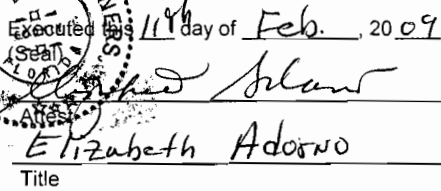 Executed this 11th day of Feb., 2009
(Seal)
Attest
Elizabeth Adorno
Title